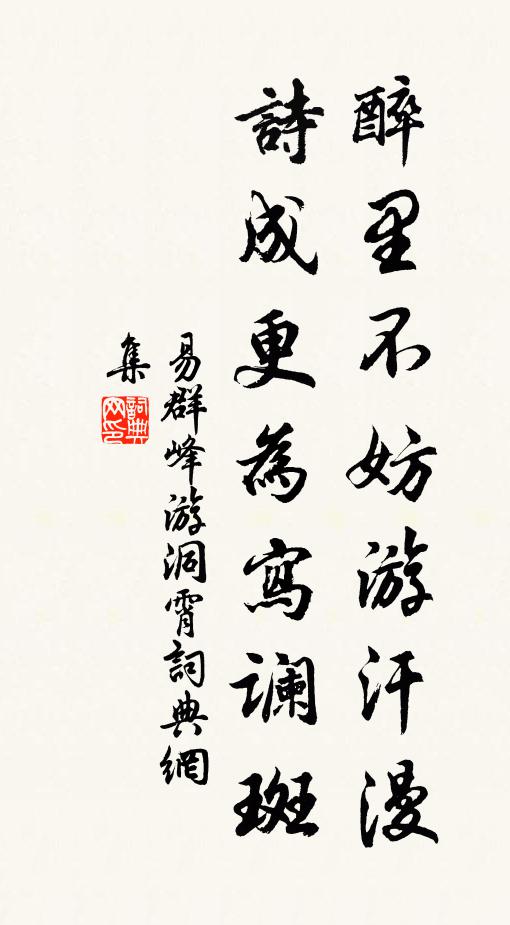 醉里不妨游汗漫
詩成更為寫谰斑
易群峰游洞霄詞典網
集
詞典網印